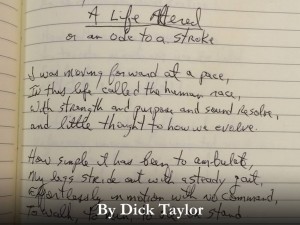 A Life Altered
or an ode to a stroke
I was moving forward at a pace,
In this life called the human race,
With strength and purpose and sound resolve,
and little thought to how we evolve.
How simple it has been to ambulate,
My legs stride out with a steady gait,
Effortlessly in motion with no command,
To walk, to run, to stand
By Dick Taylor